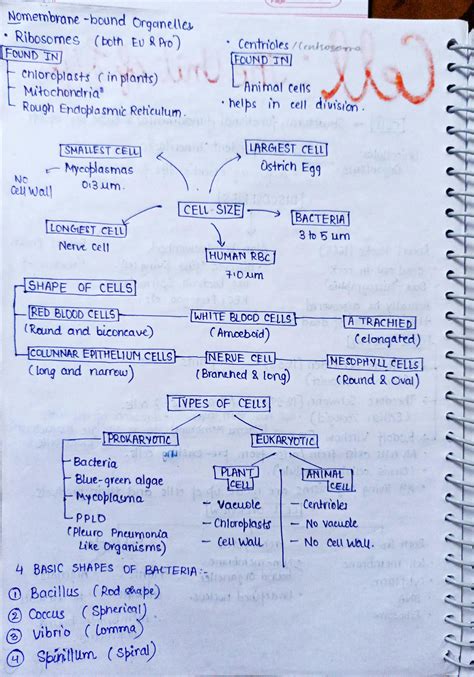 Nomembrane-bound Organelles
• Ribosomes (both Eu & Pro)
FOUND IN
- chloroplasts (in plants)
- Mitochondria
- Rough Endoplasmic Reticulum.
• Centrioles / Centrosome
FOUND IN
Animal cells
• helps in cell division.
Cell:
SMALLEST CELL
Mycoplasmas
0.3 um.
No
Cell Wall
LARGEST CELL
Ostrich Egg
CELL-SIZE
BACTERIA
3 to 5 um
LONGEST CELL
Nerve cell
HUMAN RBC
7.0 um
SHAPE OF CELLS
RED BLOOD CELLS
(Round and biconcave)
WHITE BLOOD CELLS
(Amoeboid)
A TRACHIED
(elongated)
COLUNNAR EPITHELIUM CELLS
(long and narrow)
NERVE CELL
(Branched & long)
MESOPHYLL CELLS
(Round & Oval)
TYPES OF CELLS
PROKARYOTIC
- Bacteria
- Blue-green algae
- Mycoplasma
- PPLO
(Pleuro Pneumonia
Like Organisms)
EUKARYOTIC
PLANT
CELL
- Vacuole
- Chloroplasts
- Cell Wall
ANIMAL
CELL
- Centrioles
- No vacuole
- No Cell Wall.
4 BASIC SHAPES OF BACTERIA:-
① Bacillus (Rod shape)
② Coccus (Spherical)
③ Vibrio (Comma)
④ Spirillum (Spiral)